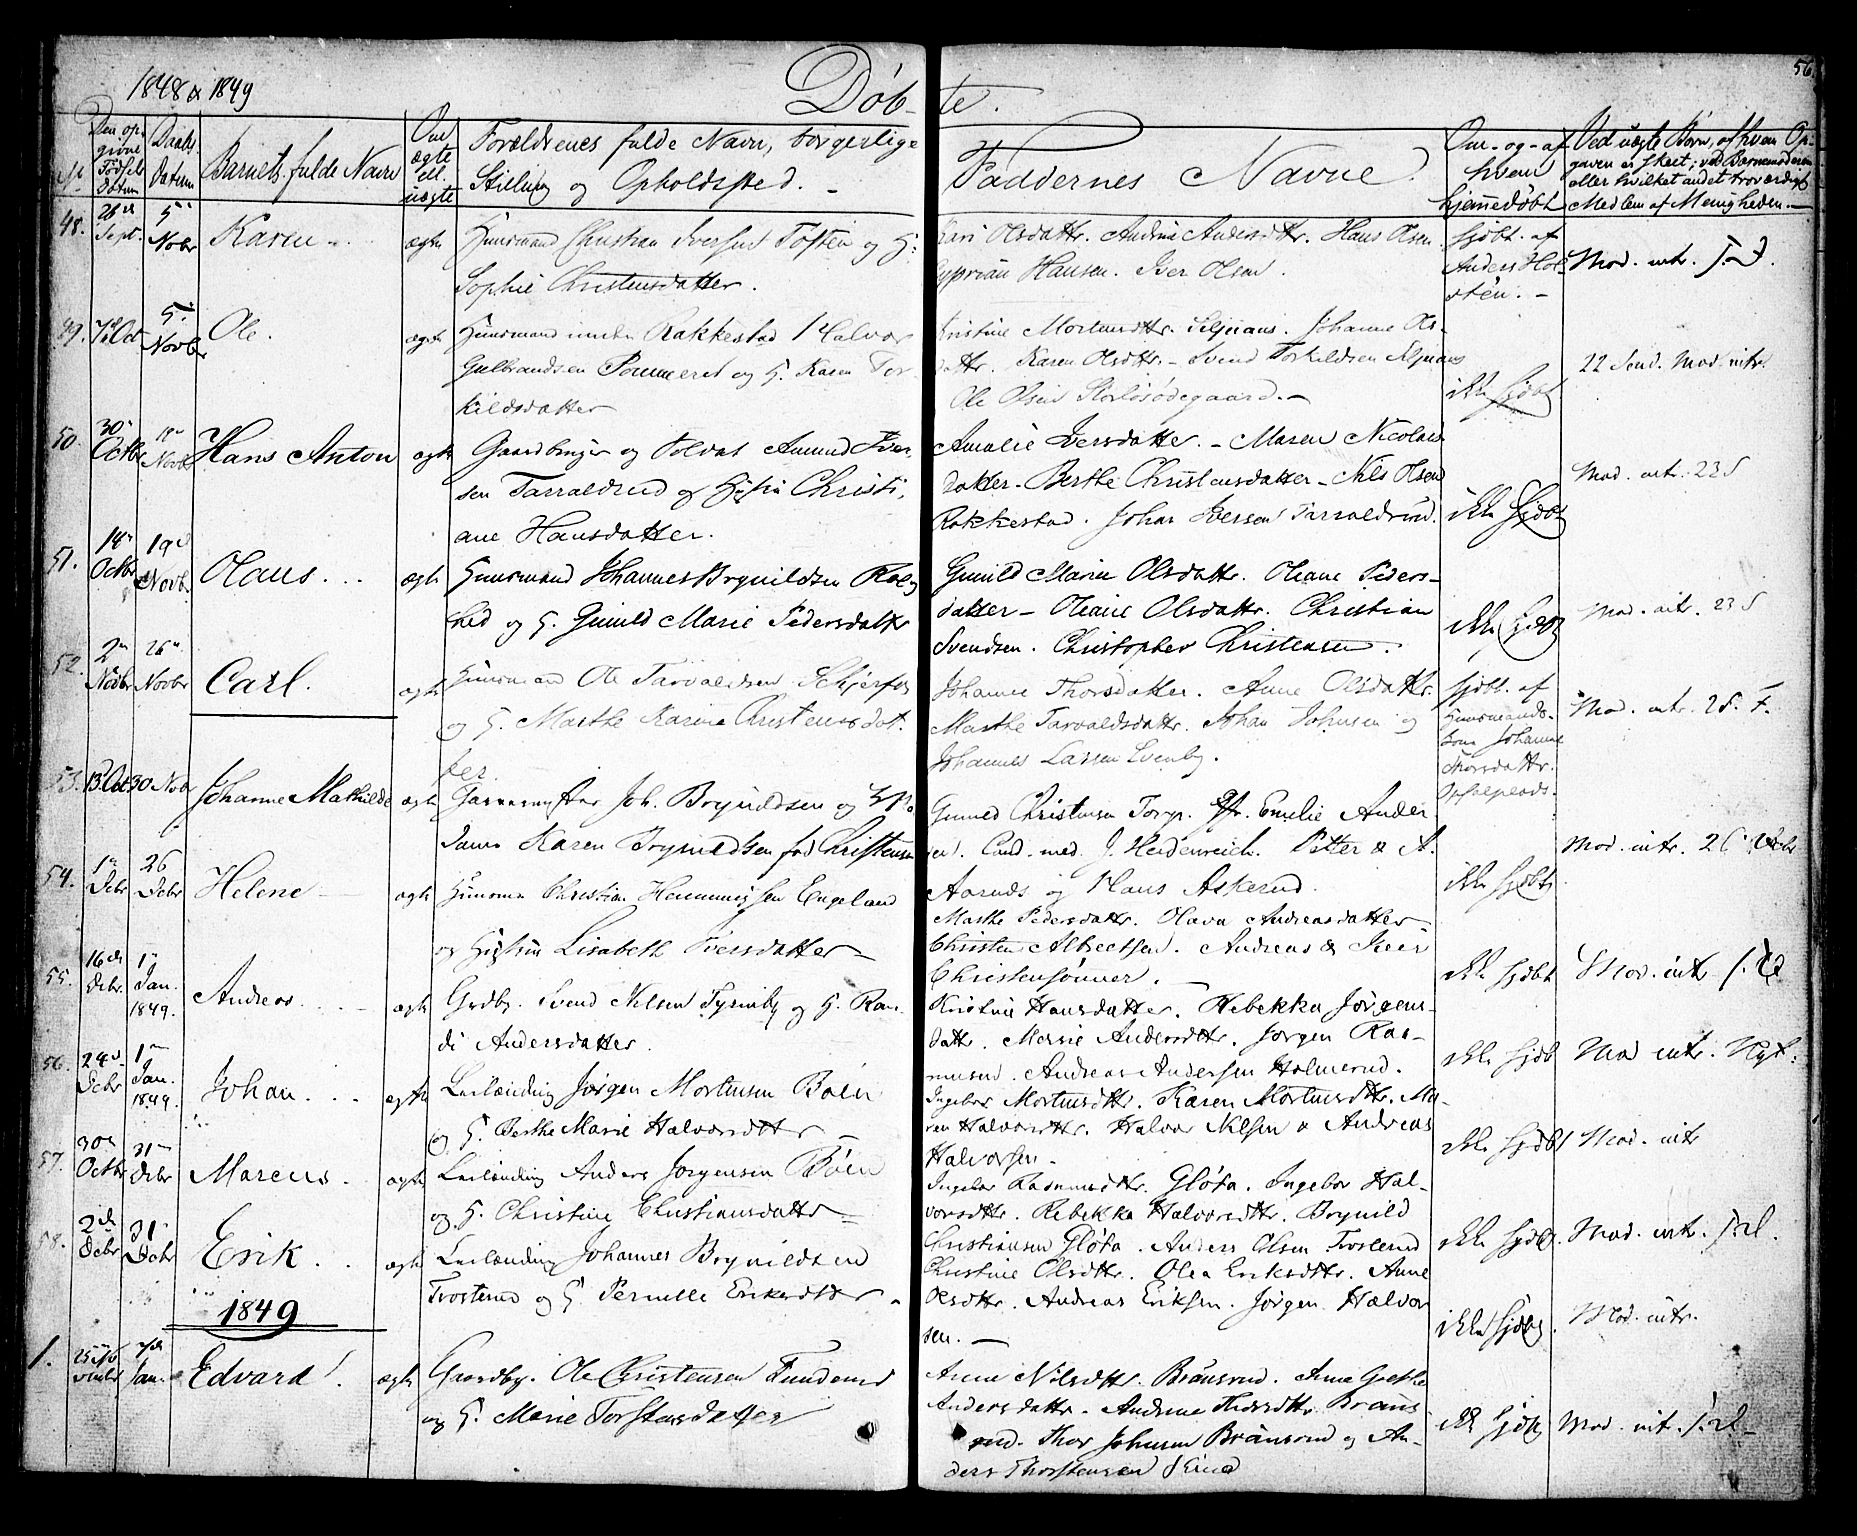 56
1848 & 1849
Døb- te.
№
Den op-
givne
Fødsels
Datum
Daabs
Datum
Barnets fulde Navn
Om
ægte
ell.
uægte
Forældrenes fulde Navn, borgerlige
Stilling og Opholdssted. -
Faddernes Navne
Om- og- af
hvem
hjemmedøbt
Ved uægte Børn, af hvem Op-
gaven er skeet; ved Barnemoderen
eller hvilket andet troværdigt
Medlem af Menigheden. -
48. 26de Sept. 5 Novbr Karen ægte
Huusmand Christian Iversen Toften og H:
Sophie Christensdatter.
Kari Olsdattr. Andrine Andersdttr. Hans Olsen
Cyprian Hansen. Iver Olsen.
hjdbt. af
Anders Hol-
stén. -
Mod. intr. s.d.
49. 7de Oct 5 Novbr Ole. ægte
Huusmand under Rakkestad Halvor
Gulbrandsen Pommeret og H. Karen Tor-
kildsdatter
Kristine Mortensdttr. Seljeaas. Johanne Ols-
dattr. Karen Olsdttr. - Svend Torkildsen Seljeaas
Ole Olsen Storløsødegaard. -
ikke hjdbt
22 Sønd. Mod. intr.
50. 30 Octbr Novbr Hans Anton ægte
Gaardbruger og Soldat Amund Iver-
sen Tarraldrud og Hustru Christi-
ane Hansdatter.
Amalie Iversdatter. - Maren Nicolais
datter - Berthe Christensdatter - Nils Olsen
Rakkestad. Johan Iversen Tarraldrud.
ikke hjdbt
Mod. intr. 23 S
51. 18 Octbr 19de Novbr Olaus. ægte
Huusmand Johannes Brynildsen
og H. Gunild Marie Pedersdatter
Gunild Marie Olsdattr. Oliane Peders-
datter - Oliane Olsdattr. Christian
Svendsen. Christopher Christensen.
ikke hjdbt
Mod. intr. 23 S
52. 2 Novbr 26 Novbr Carl. ægte
Huusmand Ole Tarvaldsen
og H. Marthe Karine Christensdat-
ter.
Johanne Thorsdatter. Anne Olsdattr.
Marthe Tarvaldsdattr. Johan Johnsen og
Johannes Larsen Evenby.
hjdbt. af
Huusmands-
Johanne
Thorsdattr.
Mod. intr. 25. T.
53. 13 Oct 30 Novbr Johanne Mathilde ægte
Garvermester Joh. Brynildsen og
Karen Brynildsen fød Christensen
Gunild Christensen Torp. Jfr. Emelie Ander-
sen. Cand. med. J. Heidenreich. Petter & A.
Aarnæs og Hans Askerud.
ikke hjdbt
Mod. intr. 26
54. 1 Dcbr 26 Dcbr Helene ægte
Huusm. Christian Hemmingsen Engeland
og Hustru Lisabeth Iversdatter
Marthe Pedersdattr. Olava Andreasdatter
Christen Albrectsen. Andreas & Iver
Christensønner. -
ikke hjdbt
Mod. intr
55. 16de Dcbr. 1 Jan. 1849. Andreas ægte
Grdbr. Svend Nilsen og H. Ran-
di Andersdatter.
Kristine Hansdatter. Rebekka Jørgens-
dattr. Andersdttr. Jørgen Ras-
musen. Andreas Andersen Holmerud.
ikke hjdb
Mod intr.
56. 24de Dcbr 1 Jan. 1849. Johan ægte
Leilænding Jørgen Mortensen Bøen
og H. Berthe Marie Halvorsdttr
Ingebor Mortensdttr. Karen Mortensdttr. Ma-
ren Halvorsdttr. Halvor Nilsen & Andreas
Halvorsen.
ikke hjdbt
Mod. intr
57. 30de Octbr 31 Dcbr Marcus ægte
Leilænding Anders Jørgensen Bøen
og H. Christine Christiansdattr
Ingebor Rasmusdttr. Gløta. Ingebor Hal-
vorsdttr. Rebekka Halvorsdttr. Brynild
Christiansen Gløta. Anders Olsen Trosterud
ikke hjdbt.
Mod. intr.
58. 2de Dcbr 31 Dcbr Erik ægte
Leilænding Johannes Brynildsen
Trosterud og H. Pernille Eriksdttr.
Christine Olsdttr. Olea Eriksdttr. Anne
Olsdttr. Andreas Eriksen. Jørgen Halvor
sen. -
ikke hjdbt.
Mod. intr.
1849
1. 7de Jan. Edvard ægte
Gaardbr. Ole Christensen
og H. Marie Torstensdatter
Anne Nilsdttr. Brånsrud. Anne Grethe
Andersdattr. Andrine Thorsdttr Bråns-
rud. Thor Johnsen Brånsrud og An-
ders Thorstensen
ikke hjdbt
Mod. intr.